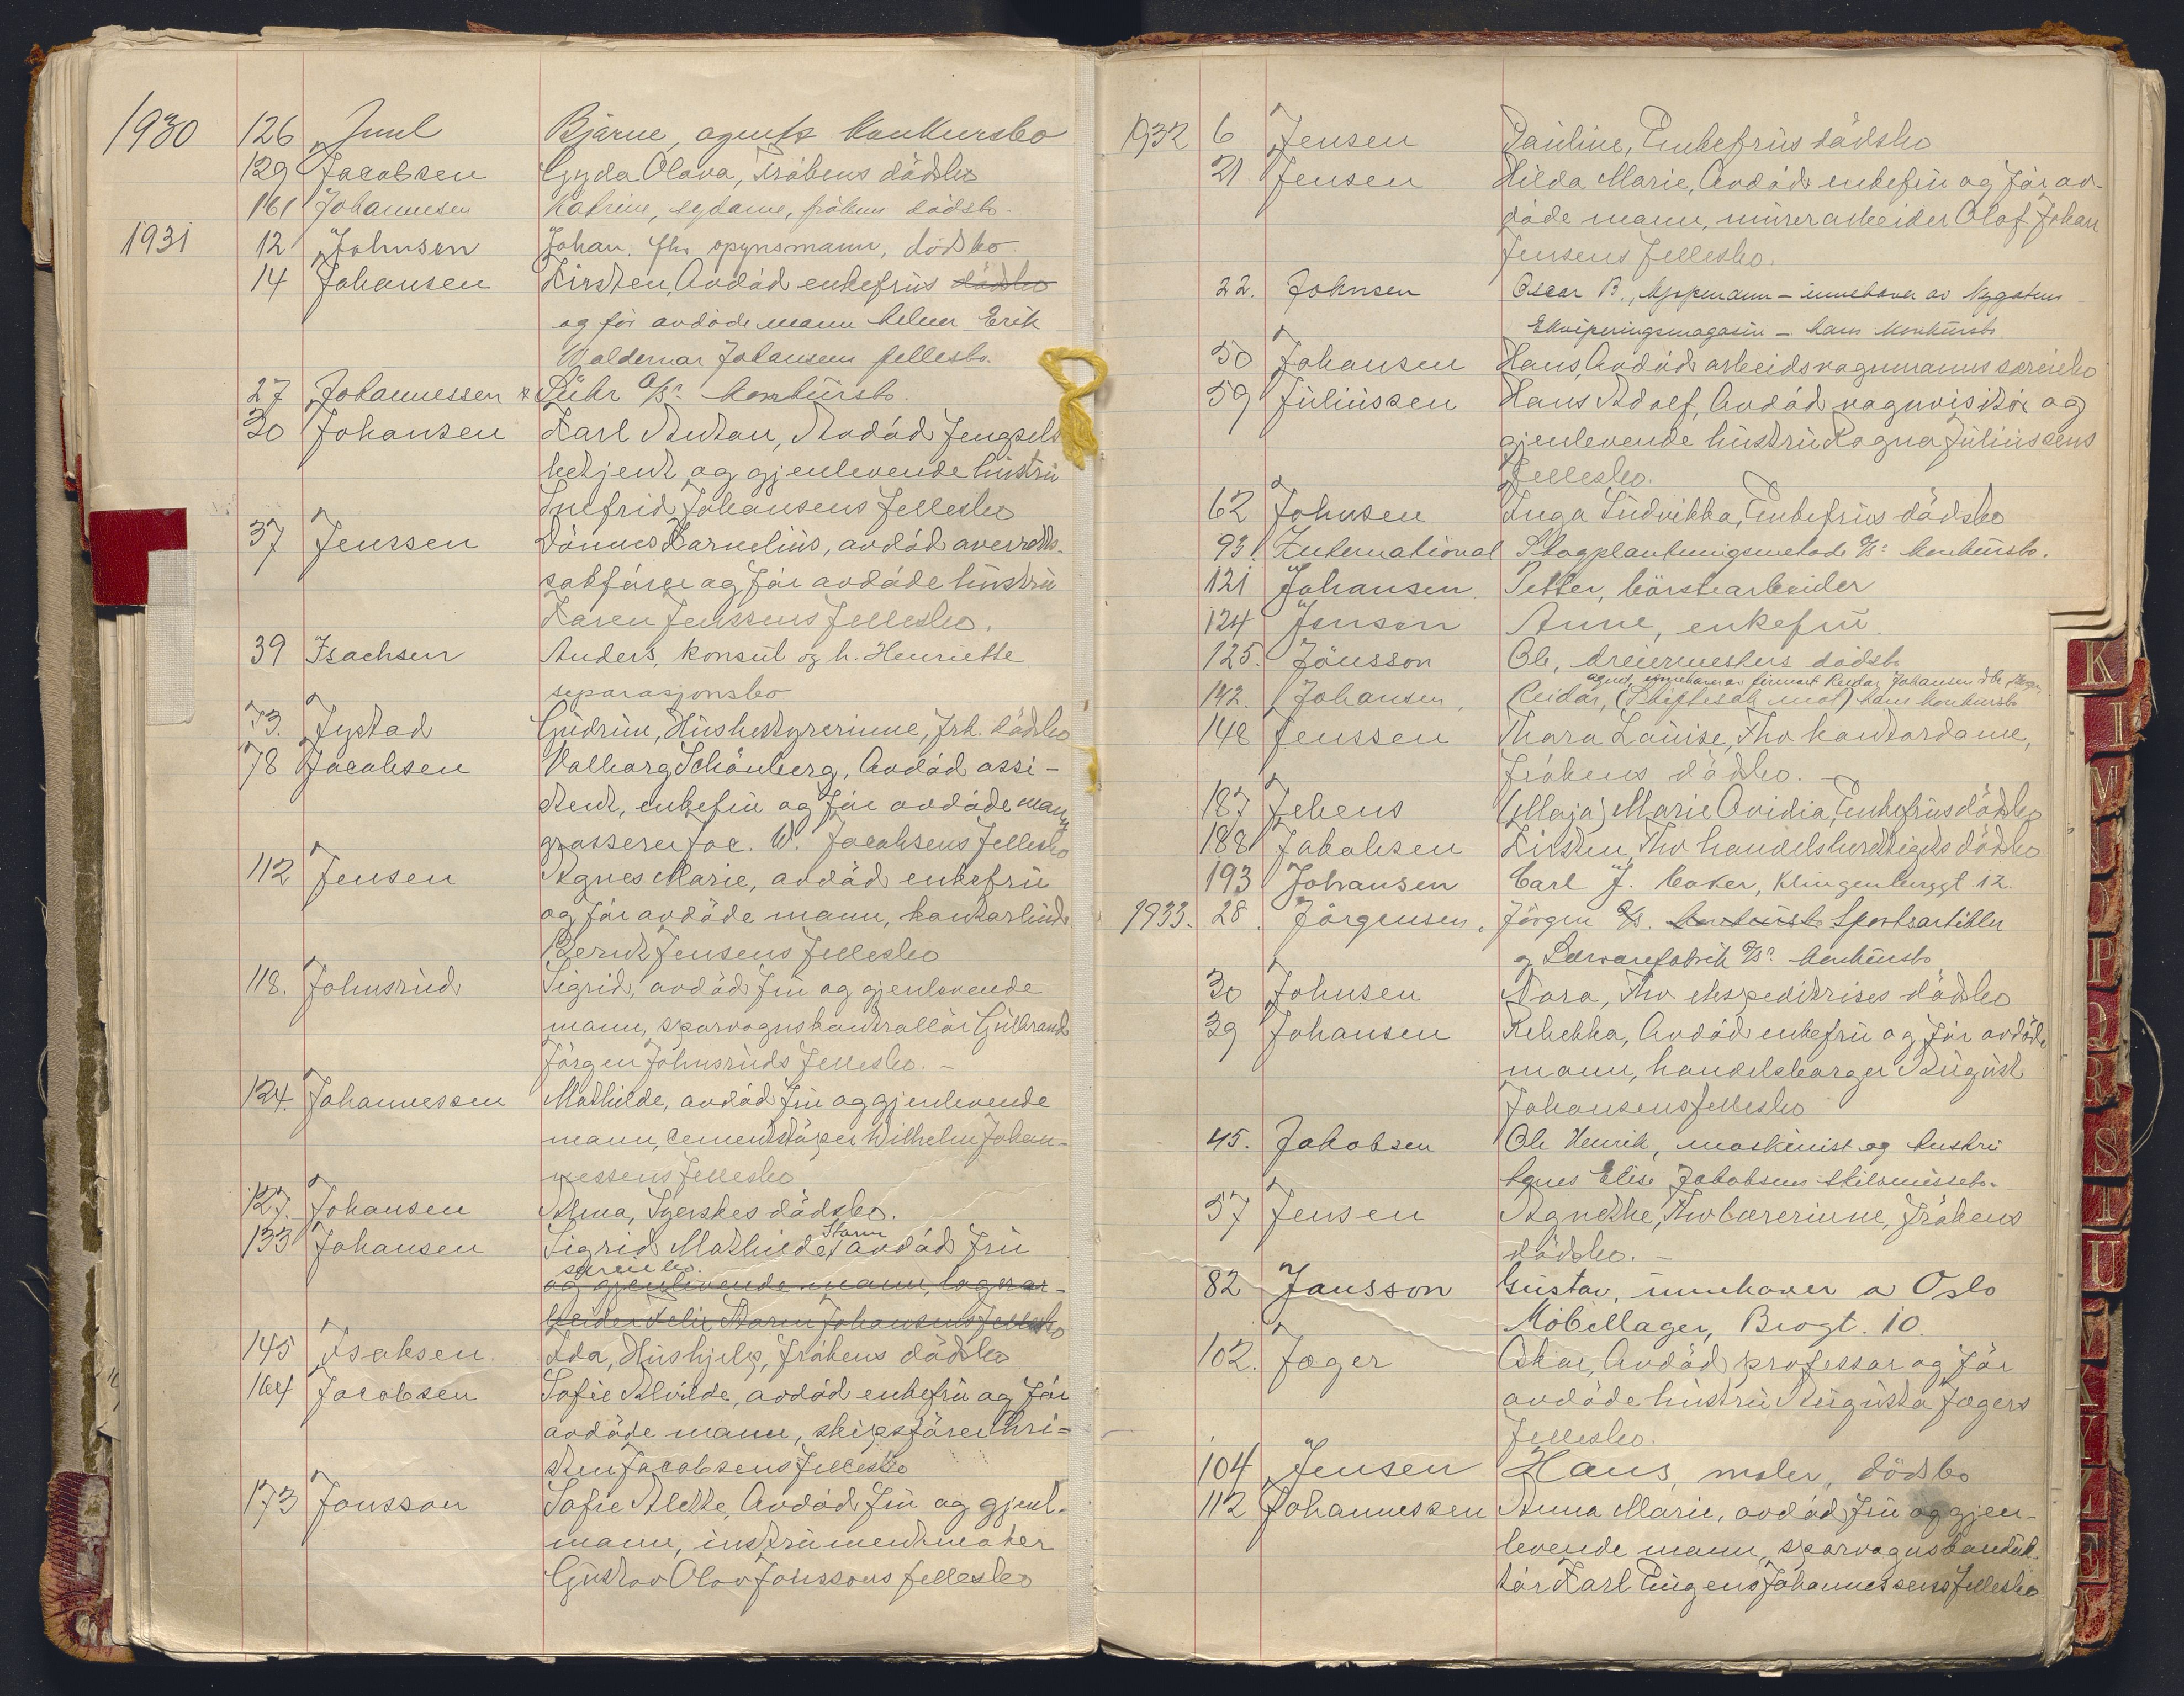 1930 126 Juul Bjarne, agents konkursbo
129 Jacobsen Gyda Olava, Frökens dödsbo
161 Johannesen Katrine, sydame, fröken dödsbo.
1931 12 Johnsen Johan. fhv opynsmann, dödsbo
14 Johansen Kirsten, Avdöd enkefrus dödsbo
og för avdöde mann Helmer Erik
Waldemar Johansens fellesbo.
27 Johannessen & Lühr A/S: konkursbo.
30 Johansen Karl Anton, Avdöd fengsels
betjent og gjenlevende hustru
Inefrid Johansens fellesbo
37 Jenssen Dönnes Kornelius, avdöd overretts-
sakförer og för avdöde hustru
Karen Jenssens fellesbo.
39 Isachsen Anders, konsul og h. Henriette
separasjonsbo
73. Jystad Gudrun, Husbestyrerinne, frk. dödsbo
78 Jacobsen Valborg Schönberg, Avdöd assi-
stent, enkefru og för avdöde mann
grosserer Jac. W. Jacobsens fellesbo
112 Jensen Agnes Marie, avdöd enkefru
og för avdöde mann, kontorbud
Bernt Jensens fellesbo
118. Johnsrud Sigrid, avdöd fru og gjenlevende
mann, sporvognskontrollör Gulbrand
Jörgen Johnsruds fellesbo. -
124. Johannessen Mathilde, avdöd fru og gjenlevende
mann, cementstöper Wilhelm Johan-
nessens fellesbo
127. Johansen Alma, Syerskes dödsbo.
133 Johansen Sigrid Mathilde Storm avdöd fru
særeie bo.
og gjenlevende mann, lagerar-
beider Felix Storm Johansens fellesbo
145 Isaksen. Ida, Hushjelp, frökens dödsbo
164 Jacobsen Sofie Alvilde, avdöd enkefru og för
avdöde mann, skipsförer Chri-
sten Jacobsens fellesbo
173 Jonsson Sofie Alette, Avdöd fru og gjenl.
mann, instrumentmaker
Gustav Olav Jonssons fellesbo
1932 6 Jensen Pauline, Enkefrus dödsbo
21 Jensen Hilda Marie, Avdöd enkefru og för av-
döde mann, murerarbeider Olaf Johan
Jensens fellesbo.
22. Johnsen Oscar B., kjøpmann - innehaver av Nygatens
Ekviperingsmagasin - hans konkursbo
50 Johansen Hans, Avdöd arbeidsvognmanns særeiebo
59 Juliussen Hans Adolf, Avdöd vognvisitör og
gjenlevende hustru Ragna Juliussens
fellesbo.
62 Johnsen Inga Ludvikka, Enkefrus dödsbo
93. International Skogplantningsmetode A/S: konkursbo.
121 Johansen. Petter, börstearbeider
124 Jonson Anne, enkefru.
125. Jönsson Ole, dreiermesters dödsbo
agent, innehaver av firmaet Reidar Johansen
142. Johansen, Reidar, (Skiftesak mot) hans konkursbo
148 Jenssen Thora Louise, Fhv kontordame,
frökens dödsbo. -
187 Jebens (Maja) Marie Ovidia, Enkefrus dödsbo
188 Jakobsen Kirsten, Fhv handelsberettigets dödsbo
193 Johansen Carl J. baker, Klingenberggt. 12.
1933. 28. Jörgensen, Jörgen A/S. konkursbo Sportsartikler
og Lærvarefabrik A/S: konkursbo
30 Johnsen Nora, Fhv ekspeditrises dödsbo
39 Johansen Rebekka, Avdöd enkefru og för avdöde
mann, handelsborger August
Johansens fellesbo
45. Jakobsen Ole Henrik, maskinist og hustru
Agnes Elise Jakobsens skilsmissebo.
57 Jensen Agnethe, Fhv lærerinne, frökens
dödsbo. -
82 Jansson Gustav, innehaver a Oslo
Möbellager, Brogt. 10.
102. Jæger Oskar, Avdöd professor og för
avdöde hustru Augusta Jægers
fellesbo.
104 Jensen Hans, maler, dödsbo
112 Johannessen Anna Marie, avdöd fru og gjen-
levende mann, sporvognskonduk-
tör Karl Eugens Johannessens fellesbo
K
L
M
N
O
P
R
S
T
U